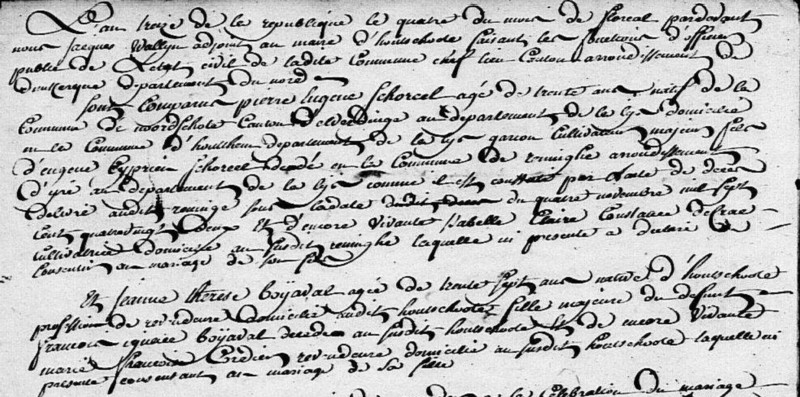 L'an treize de la republique le quatre du mois de floreal pardevant
nous Jacques Wallyn adjoint au maire d'hontschoote faisant les fonctions d'officier
public de l'Etat civil de ladite Commune chef lieu Canton arrondissement de
dunkerque departement du nord
Sont Comparus pierre Eugene Schorcel agé de trente ans natif de la
Commune de noordschote Canton d'elverdinge au departement de la lys domicilié
en la Commune d'houthem departement de la lys garçon Cultivateur majeur fils
d'eugene Cyprien Schorcel decedé en la Commune de reninghe arrondissement
d'ypre au departement de la lys comme il est constaté par l'acte de deces
delivré audit reninge sous la date du quatre novembre mil sept
Cent quatrevingt deux Et d'encore vivante Isabelle Claire Constance
Cultivatrice domiciliée au susdit reninghe laquelle ici presente a declaré de
Consentir au mariage de son fils
Et jeanne thérèse Boÿaval agée de trente sept ans native d'hontschoote
profession de revendeuse domiciliée audit hontschoote fille majeure du defunt
francois ignace Boÿaval decedé au susdit hontschoote Et de encore vivante
marie francoise revendeuse domiciliée au susdit hontschoote laquelle ici
presente consentant au mariage de sa fille
de la Célébration du mariage